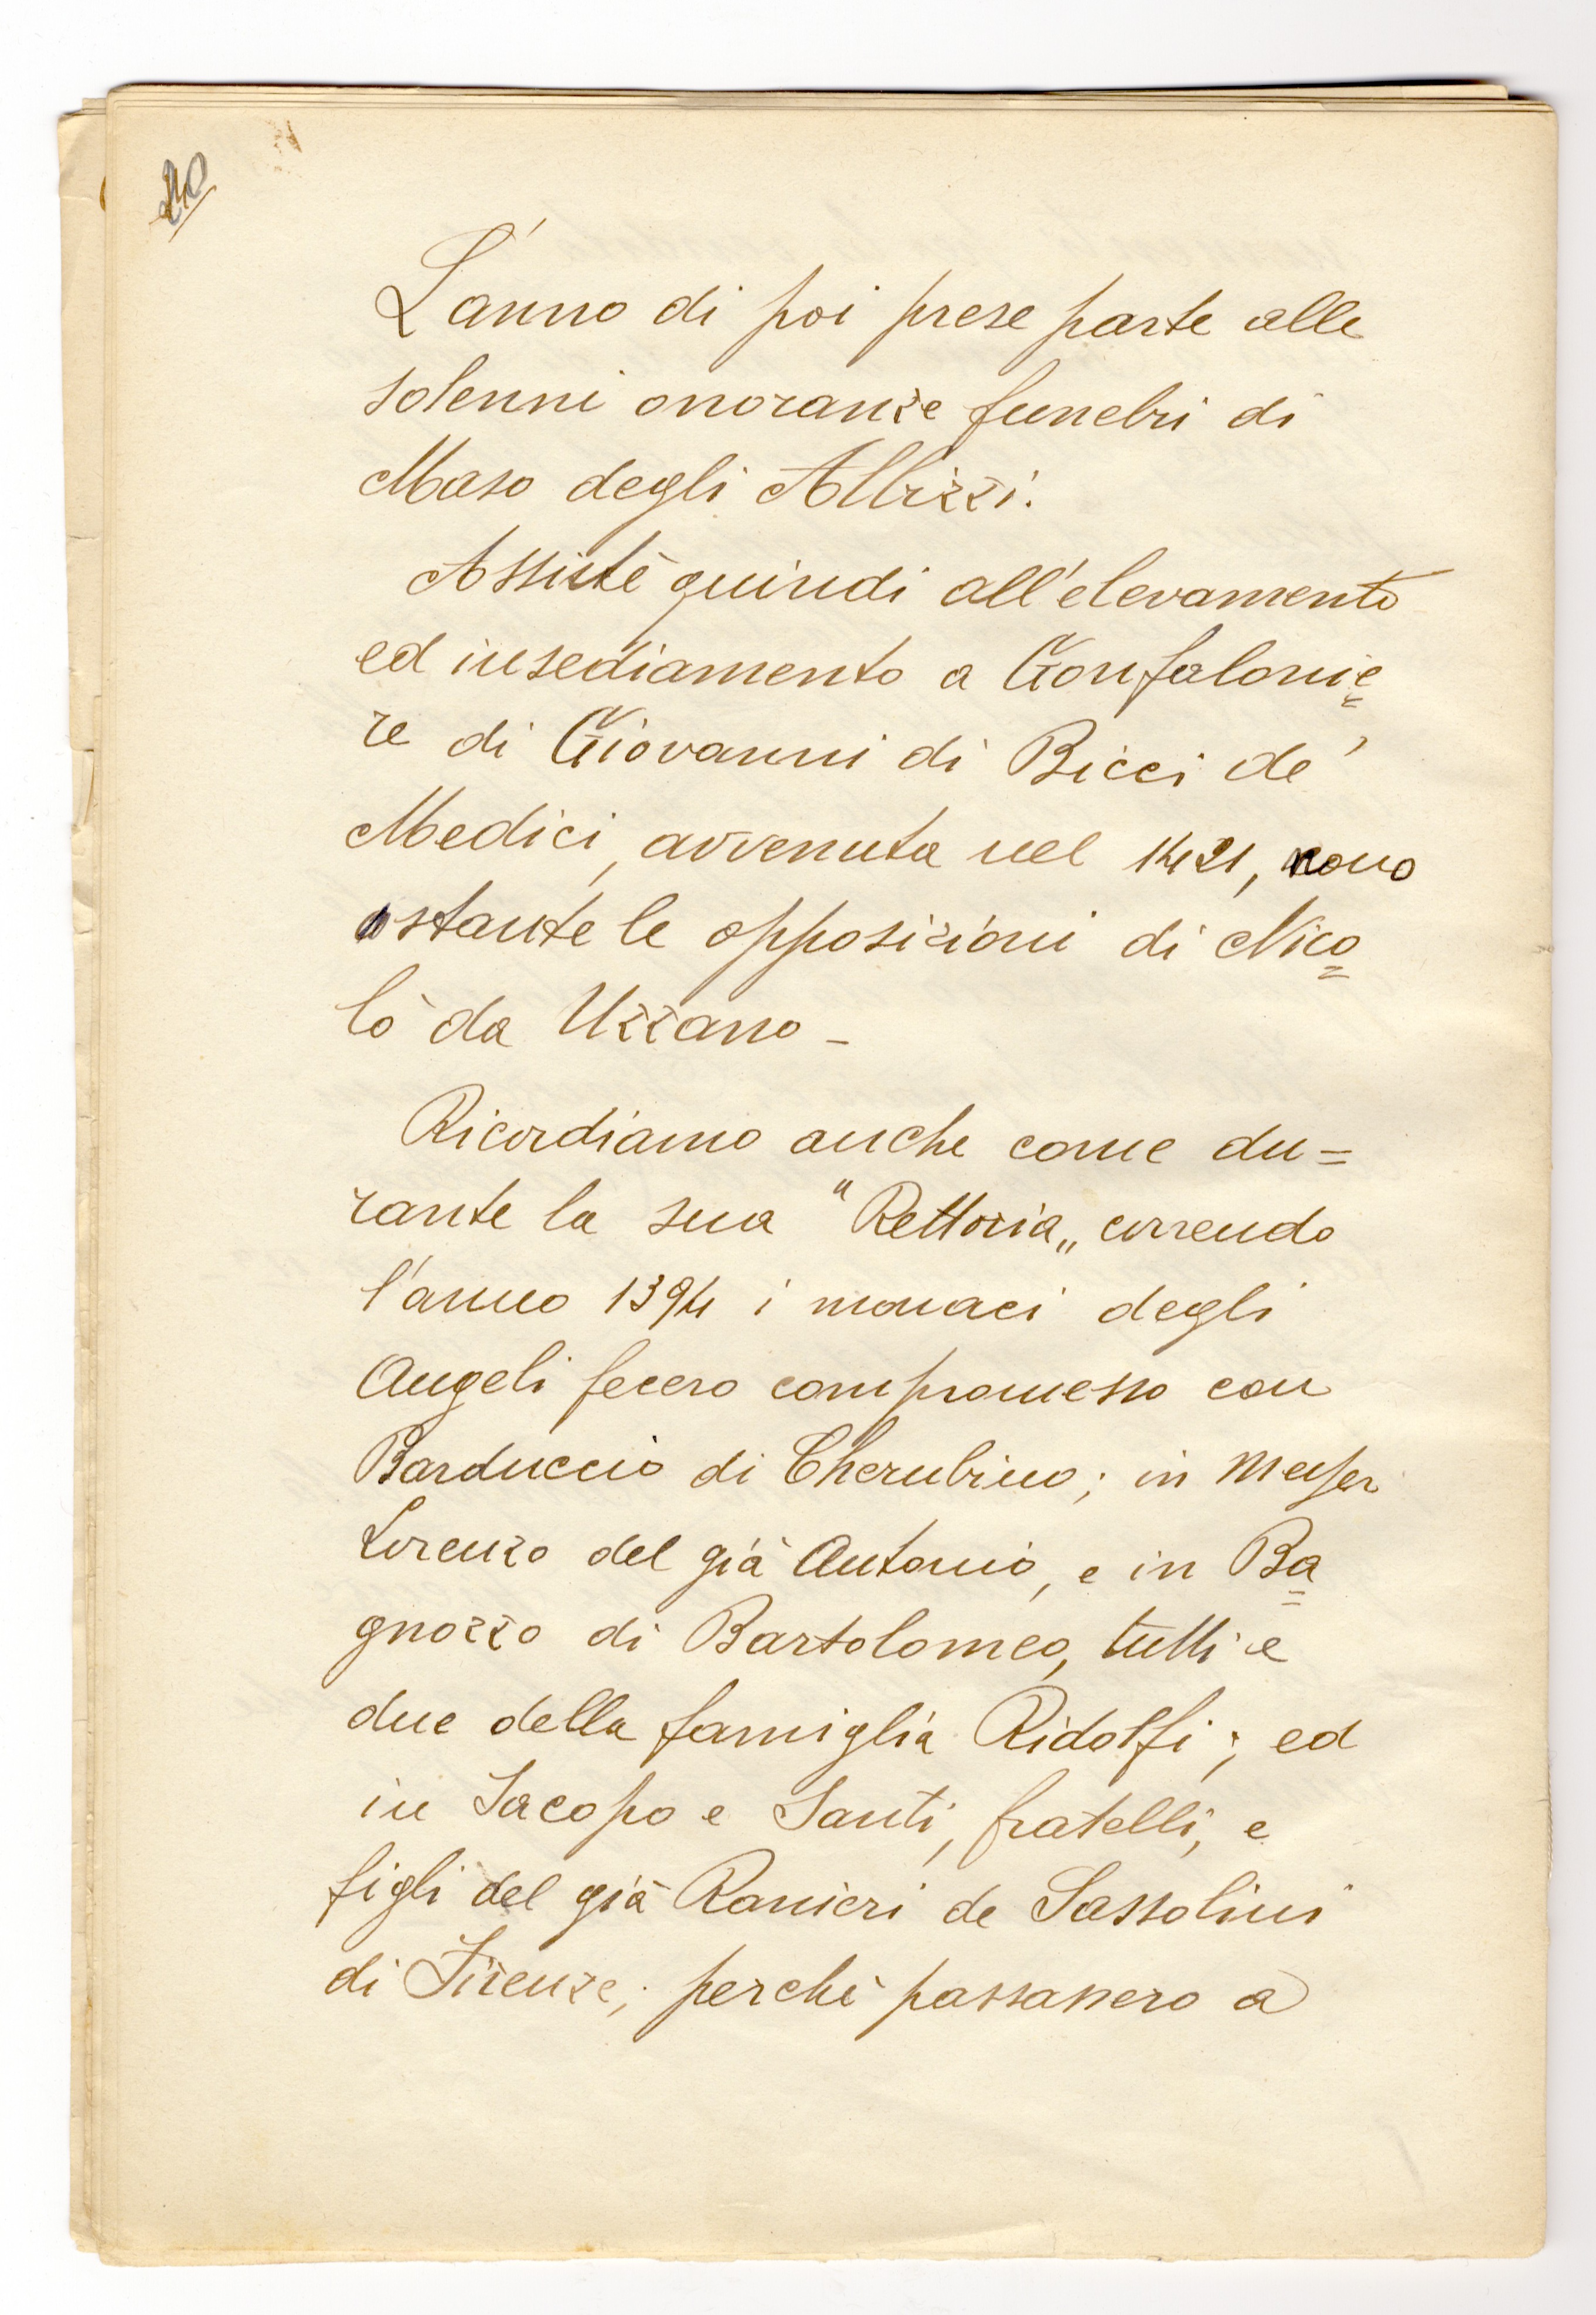 40
L'anno di poi prese parte alle
solenni onoranze funebri di
Maso degli Albizzi.
Assistè quindi all'elevamento
ed insediamento a Gonfalonie=
re di Giovanni di Bicci de'
Medici, avvenuta nel 1421, nono
ostante le opposizioni di Nico=
lò da Uzzano -
Ricordiamo anche come du=
rante la sua "Rettoria„ correndo
l'anno 1394 i monaci degli
Angeli fecero compromesso con
Barduccio di Cherubino; in Messer
Lorenzo del già Antonio, e in Ba=
gnozzo di Bartolomeo, tutti e
due della famiglia Ridolfi; ed
in Iacopo e Santi, fratelli, e
figli del già Ranieri de Sassolini
di Firenze; perchè passassero a